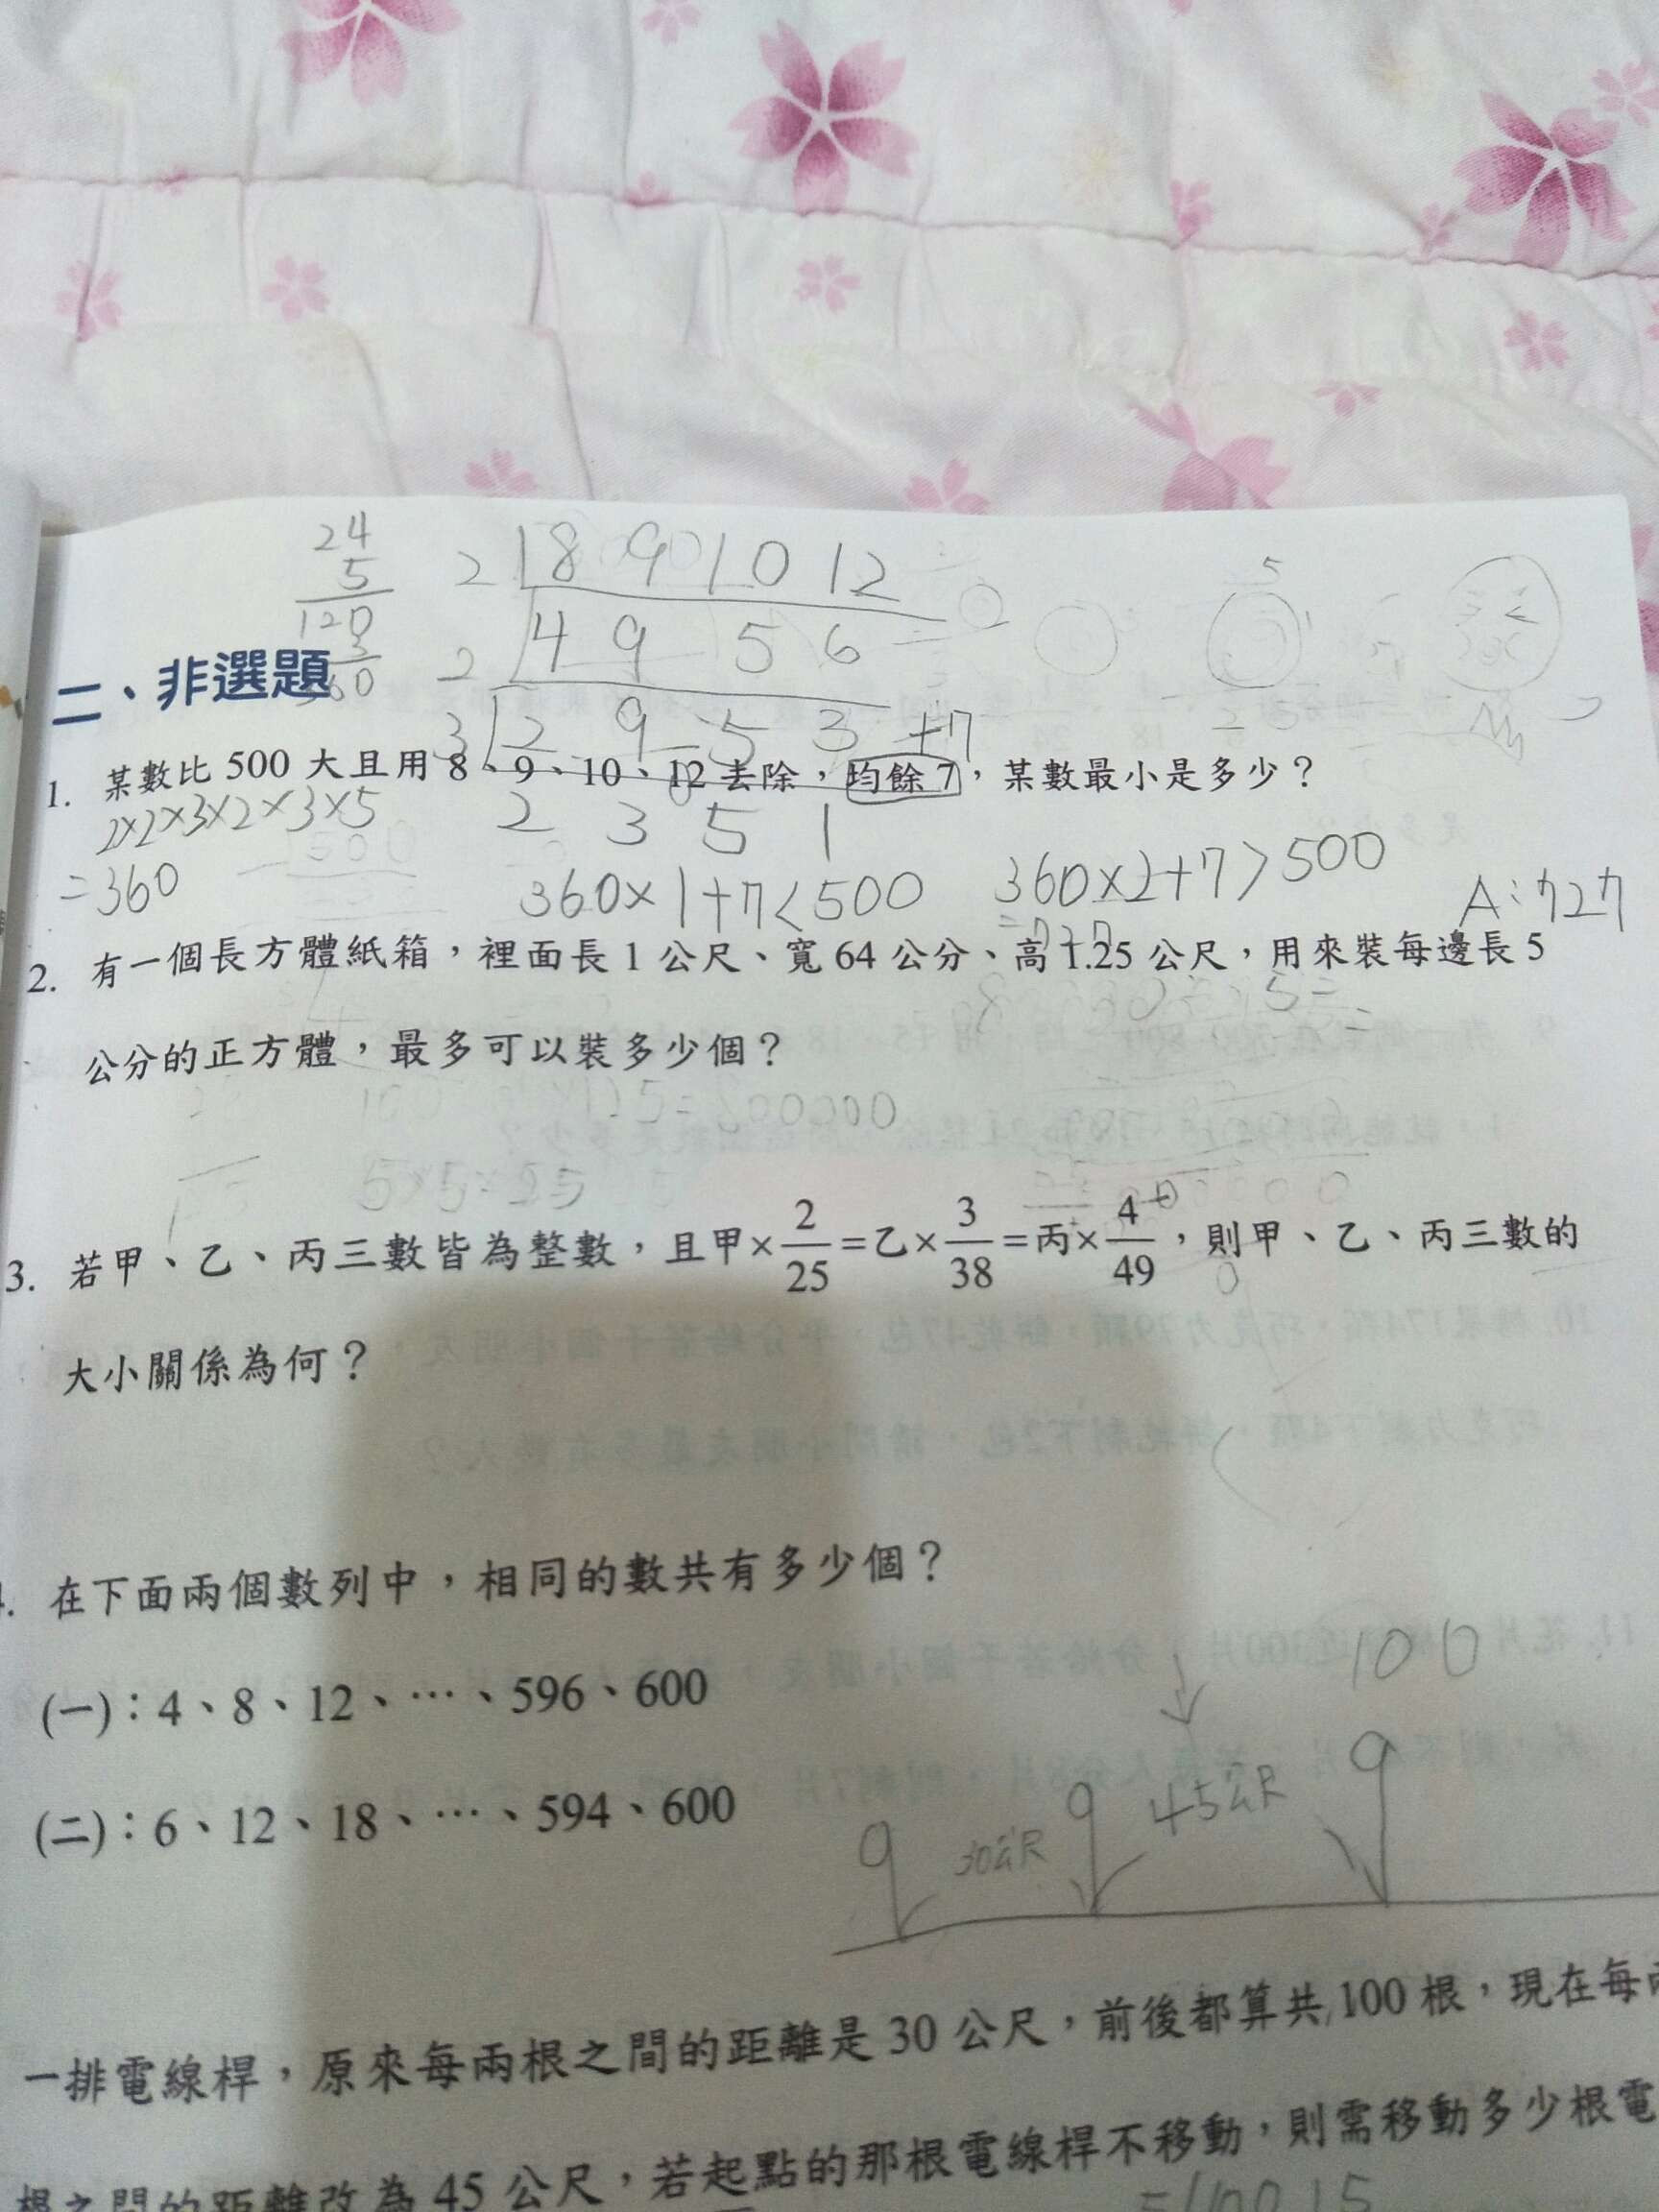 24
5
120
3
360
2 8 9 10 12
2 4 9 5 6
3 2 9 5 3 +7
2 3 5 1
二、非選題
1. 某數比 500 大且用 8、9、10、12 去除，均餘 7，某數最小是多少？
2×2×3×2×3×5
=360
360×1+7<500
360×2+7>500
=727
A:727
2. 有一個長方體紙箱，裡面長 1 公尺、寬 64 公分、高 1.25 公尺，用來裝每邊長 5
公分的正方體，最多可以裝多少個？
5×5=25
3. 若甲、乙、丙三數皆為整數，且甲×2/25=乙×3/38=丙×4/49，則甲、乙、丙三數的
大小關係為何？
4. 在下面兩個數列中，相同的數共有多少個？
(一)：4、8、12、…、596、600
(二)：6、12、18、…、594、600
100
30公尺
45公尺
一排電線桿，原來每兩根之間的距離是 30 公尺，前後都算共 100 根，現在每
根之間的距離改為 45 公尺，若起點的那根電線桿不移動，則需移動多少根電